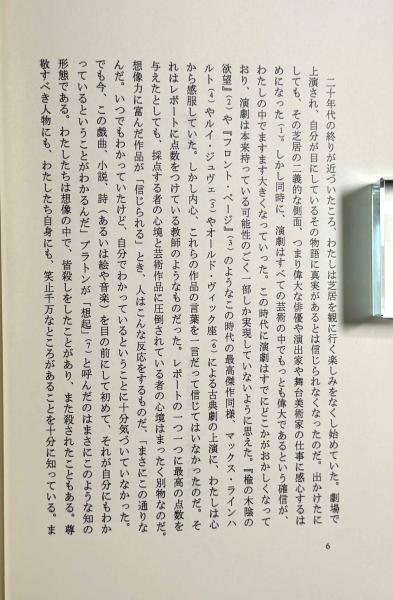 二十年代の終りが近づいたころ、わたしは芝居を観に行く楽しみをなくし始めていた。劇場で
上演され、自分が目にしているその物語に真実があるとは信じられなくなったのだ。出かけたに
しても、その芝居の二義的な側面、つまり偉大な俳優や演出家や舞台美術家の仕事に感心するは
めになった(1)。しかし同時に、演劇はすべての芸術の中でもっとも偉大であるという確信が、
わたしの中でますます大きくなっていった。この時代に演劇はすでにどこかがおかしくなって
おり、演劇は本来持っている可能性のごく一部しか実現していないように思えた。『楡の木陰の
欲望』(2)や『フロント・ページ』(3)のようなこの時代の最高傑作同様、マックス・ラインハ
ルト(4)やルイ・ジュヴェ(5)やオールド・ヴィック座(6)による古典劇の上演に、わたしは心
から感服していた。しかし内心、これらの作品の言葉を一言だって信じてはいなかったのだ。そ
れはレポートに点数をつけている教師のようなものだった。レポートの一つ一つに最高の点数を
与えたとしても、採点する者の心境と芸術作品に圧倒されている者の心境はまったく別物なのだ。
想像力に富んだ作品が「信じられる」とき、人はこんな反応をするものだ。「まさにこの通りな
んだ。いつでもわかっていたけど、自分でわかっているということに十分気づいていなかった。
でも今、この戯曲、小説、詩（あるいは絵や音楽）を目の前にして初めて、それが自分にもわか
っているということがわかるんだ」プラトンが「想起」(7)と呼んだのはまさにこのような知の
形態である。わたしたちは想像の中で、皆殺しをしたことがあり、また殺されたこともある。尊
敬すべき人物にも、わたしたち自身にも、笑止千万なところがあることを十分に知っている。ま
6